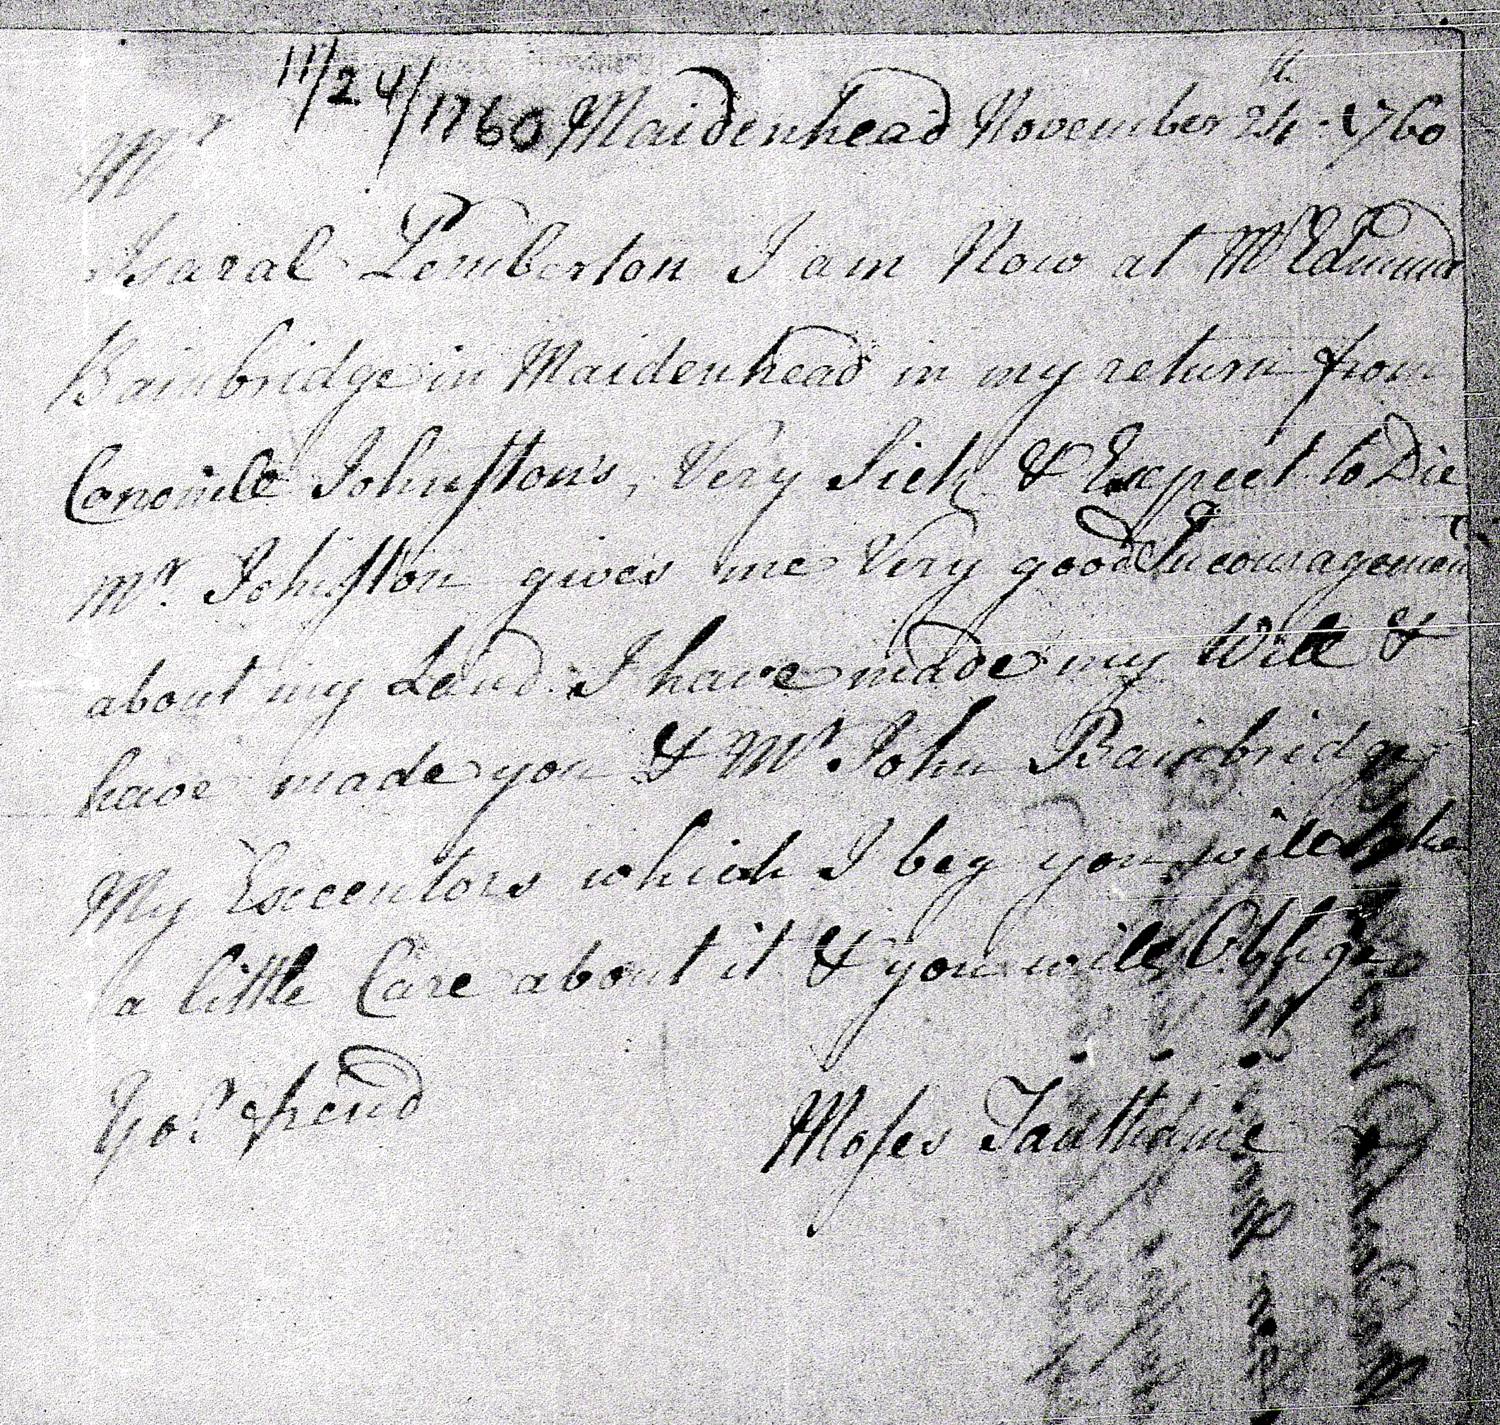 11/24/1760 Maidenhead November 24th 1760
Mr
Isaral Pemberton I am Now at Mr Edmund
Bainbridge in Maidenhead in my return from
Johnston's, Very Sick & Expect to Die
Mr. Johnston gives me Very good Incouragement
about my Land. I have made my Will &
have made you & Mr John Bainbridge
My Executors which I beg you will take
a little Care about it & you will Oblige
Yor. frend
Moses